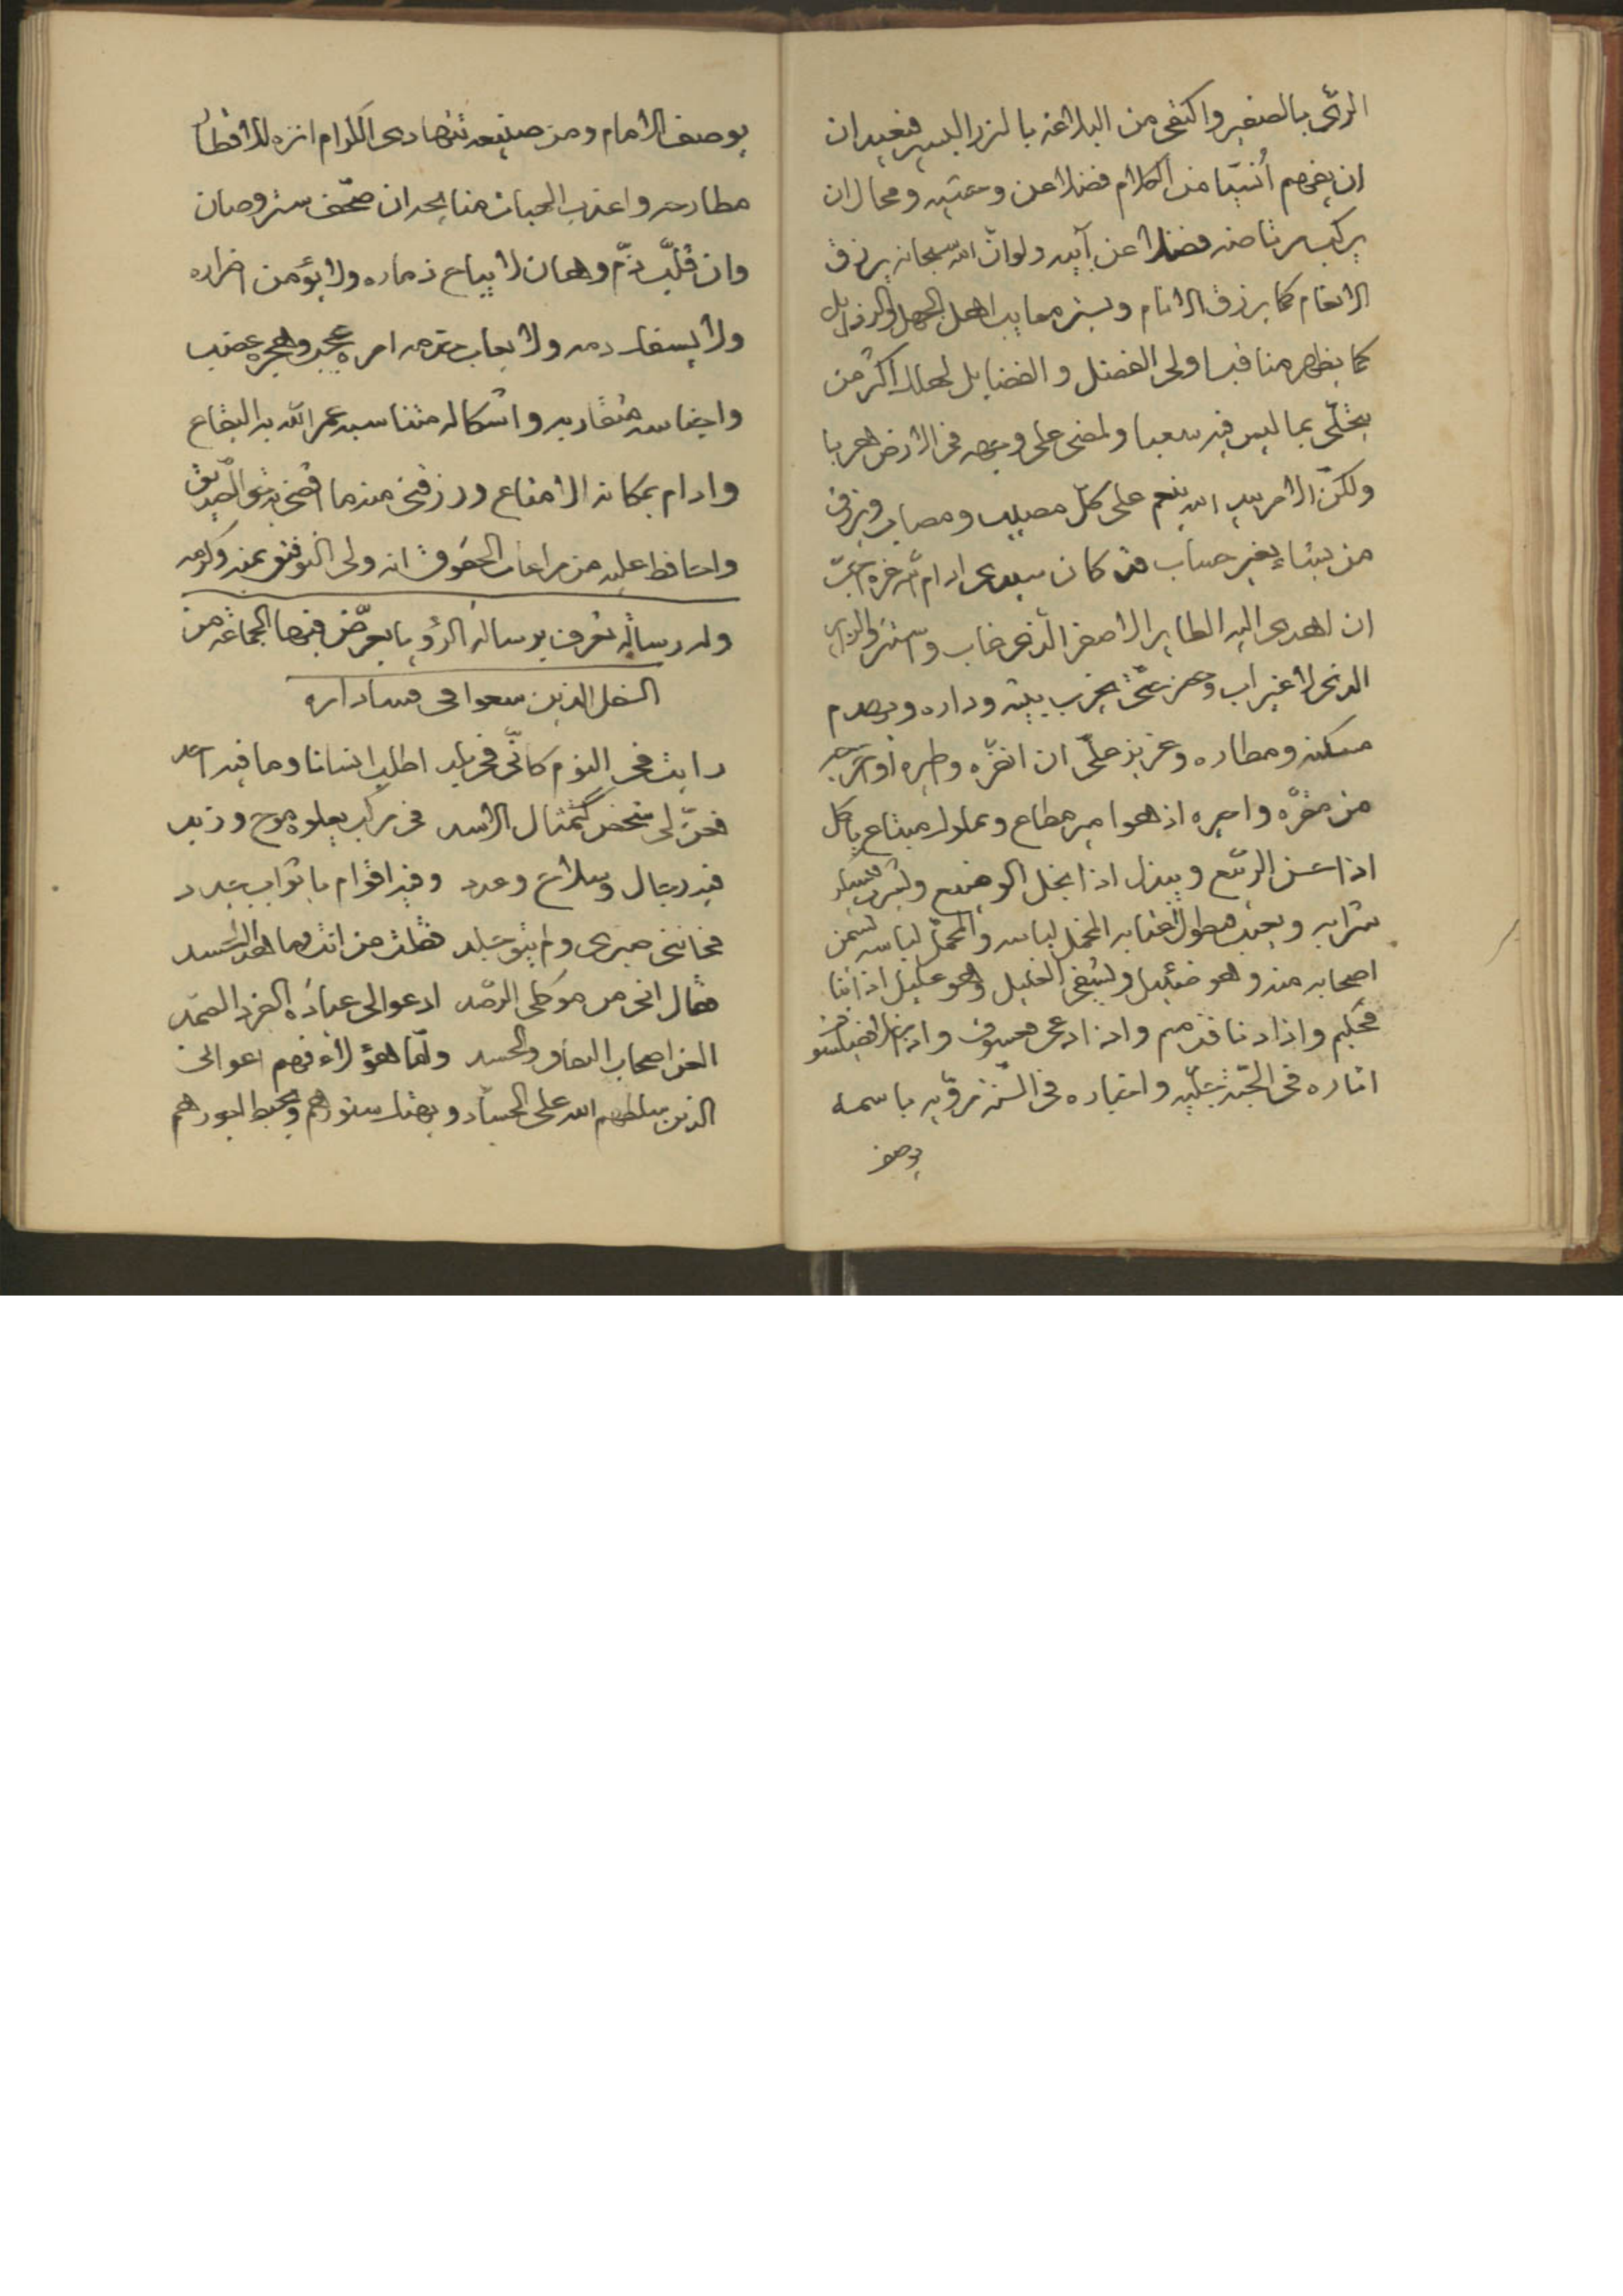 الرئى بالصغير واكتفى من البلاغة بالنزر اليسير فبعيد ان
ان يفهم أنسيّا من الكلام فضلا عن وحشيه ومحال ان
يركب مرتاضه فضلا عن آبيه ولو انّ الله سبحانه يرزق
الانعام كما يرزق الانام ويستر معايب اهل الجهل والرذايل
كما يظهر مناقب اولى الفضل والفضايل لهلك اكثر من
يتحلّى بما ليس فيه سعبا ولمضى على وجهه فى الارض هربا
ولكنّ الامر بيد الله ينعم على كلّ مصيب ومصاب ويرزق
من يشاء بغير حساب قد كان سيدى ادام الله عزه احبّ
ان اهدى اليه الطاير الاصفر الذى غاب
الذى لا غير اب وحزنى حتى يخرب بيته وداره ويهدم
مسكنه ومطاره وعزيز علىّ ان انفّره واطيره او ازعجه
من مقرّه واحيره اذ هو امير مطاع ومملوك مبتاع ياكل
اذا الرتع وينزل اذا بخل الوضيع
شرابه ويجيد المخمل لباسه والمجمل لباسه يسمن
اصحابه منه وهو ضئيل ويشفى الغليل وهو عليل اذا نأا
فحكيم واذا دنا فنديم واذا ادعى فيلسوف
اثاره فى الجبّة جليّه واخباره فى السنّة مرويّه باسمه
يوصف
يوصف الامام ومن صنيعه تتهادى الكرام انزه الاقطار
مطارحه واعذب الجبات مناهجه ان صحّف ستر وصان
وان قلّب ذمّ وهان لا يباع ذماره ولا يؤمن اضراره
ولا يسفك دمه ولا يعاب قدمه امره عجيب وهجره غضب
واجناسه متقاربه واشكاله متناسبه عمر الله به البقاع
وادام بمكانه الامتاع ورزقنى منه ما اقضى به حق الصديق
واحافظ عليه من مراعات الحقوق انه ولى التوفيق بمنه وكرمه
وله رسالة تعرف برسالة الرؤيا يعرّض فيها بجماعة من
السفل الذين سعوا فى فساد امره
رايت فى النوم كانّى فى بلد اطلب انسانا وما فيه احد
فعنّ لى شخص كتمثال الاسد فى مركب يعلوه موج وزبد
فيه رجال وسلاح وعدد وفيه اقوام باثواب جدد
فخاننى صبرى ولم يبق جلد فقلت من انت وما هذا الحسد
فقال انى من موكلى الرصد ادعو الى عبادة الفرد الصمد
العن اصحاب النفاق والحسد وامّا هؤلاء فهم اعوانى
الذين سلطهم الله على الحسّاد ويهتك ستورهم ويحبط امورهم